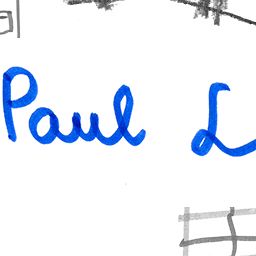 Paul L